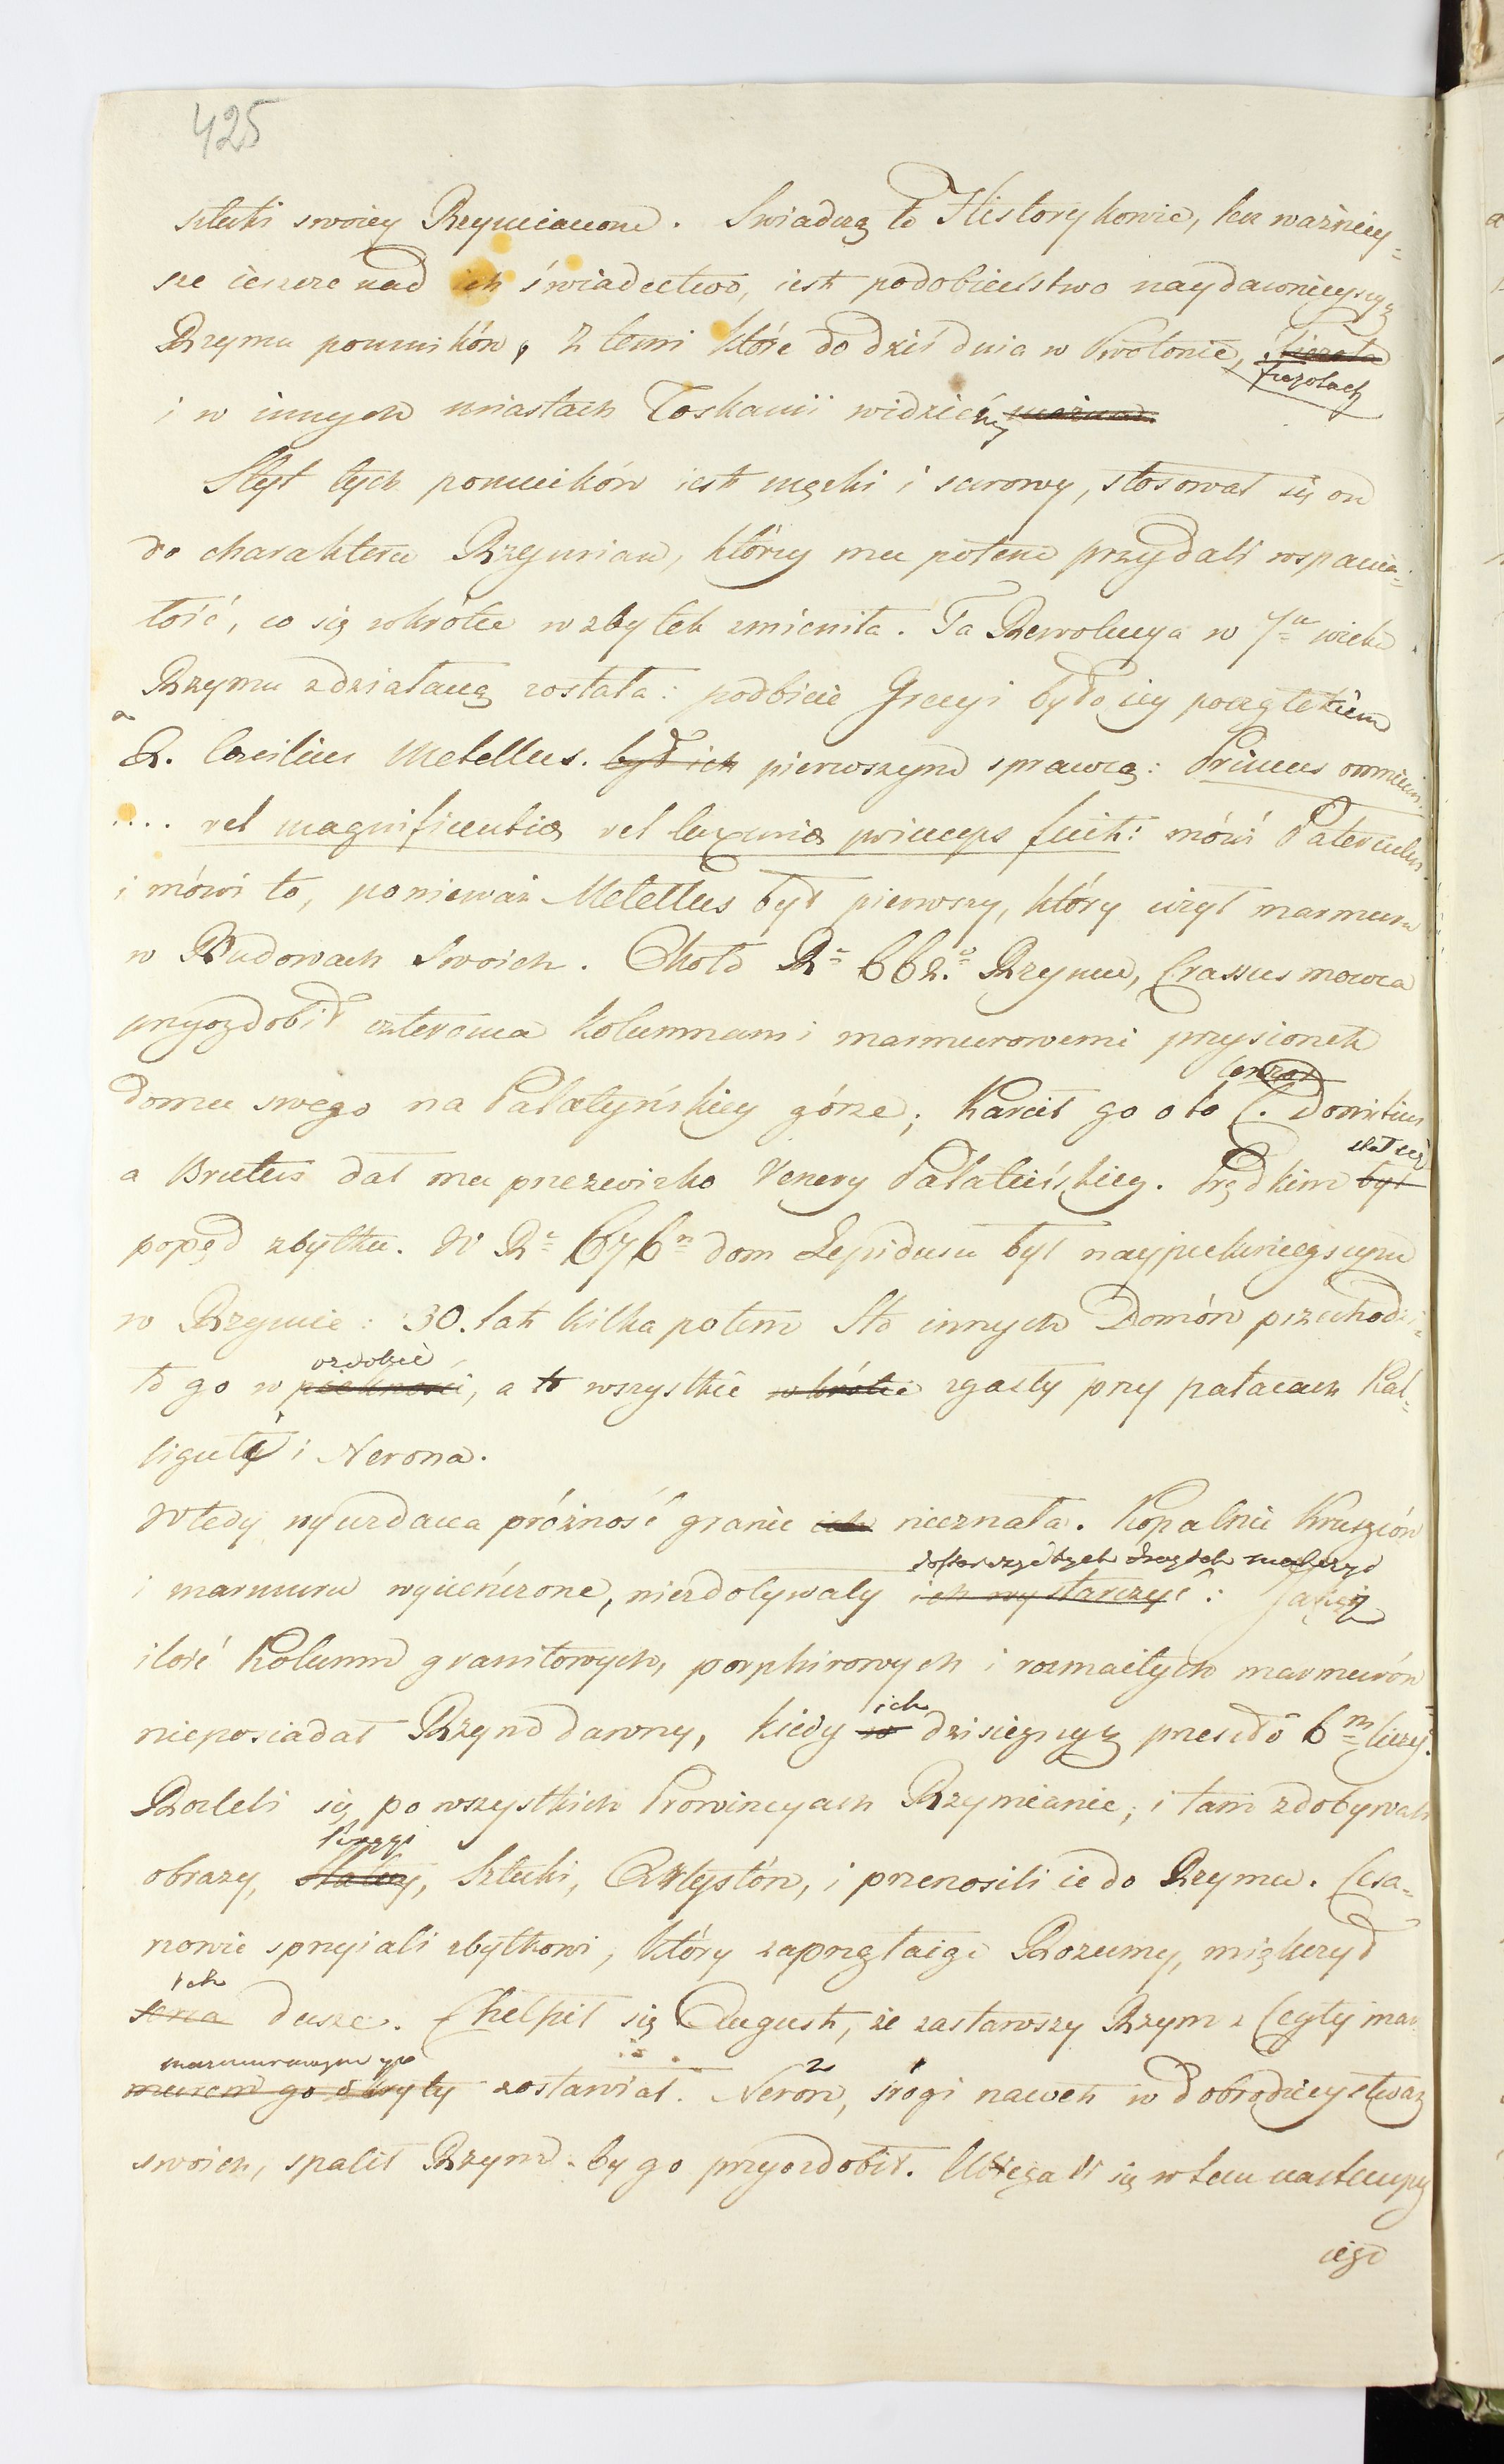 425
sztuki swoiey Rzymianom. Swiadczą to Historykowie, lecz ważniey-
sze ieszcze nad ich świadectwo, iest podobieństwo naydawnieyszych
Rzymu pomników, z temi które do dziś dnia w Kwotonie,
fiezolach
i w innych miastach Toskanii widziemy
Styl tych pomników iest męzki i surowy, stosował się on
do charakteru Rzymian, którzy mu potem przydali wspania-
łość, co się wkrótce w zbytek zmieniła. Ta Rewolucya w 7u wieku
Rzymu zdziałaną została: podbicie Grecyi było iey początkiem
a
Q. Caecilius Metellus. był ich pierwszym sprawcą: Primus omnium
.... vel magnificentiae vel luxuriae princeps fuit: mówi Paterculus
i mówi to, ponieważ Metellus był pierwszy, który użył marmuru
w Budowach swoich. Około R= 662.o Rzymu, Crassus mowca
przyozdobił czterema kolumnami marmurowemi przysionek
domu swego na Palatyńskiey górze; karcił go o to C. Domitius
a Brutus dał mu przezwisko Venery Palatińskiey. Prędkim był
stał się
popęd zbytku. W R= 676n dom Lepidusa był naypięknieyszym
w Rzymie: 30. lat kilka potem Sto innych Domów przechodzi-
ozdobie
ło go w piękności, a to wszystkie w krótce zgasły przy pałacach Kal-
liguli i Nerona.
Wtedy wyuzdana próżność granic ich nieznała. Kopalnie Kruszców
dostarczyć tych drogich materyi
i marmuru wycieńczone, niezdoływały ich wystarczyć: Jakiey
ilość Kolumn granitowych, porphirowych i rozmaitych marmurów
ich
nieposiadał Rzym dawny, kiedy w dzisieyszy przeszło 6m liczy.
Rozleli się po wszystkich Prowincyach Rzymianie, i tam zdobywali
Posągi
obrazy, Statuy, Sztuki, Artystów, i przenosili ie do Rzymu. Cesa-
rzowie sprzyiali zbytkowi, który zaprzątaiąc Rozumy, miękczył
ich
serca dusze. Chełpił się August, że zastawszy Rzym z Cegły mar-
marmurowym go
murem go okryty zostawiał. Neron, srogi nawet w dobrodzieystwach
2 1
swoich, spalił Rzym by go przyozdobił. Ubiegali się w tem następcy
iego